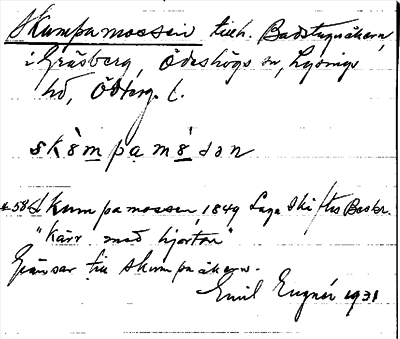 Skumpamossen tillh. Badstuguåkern,
i Gråsberg, Ödeshögs sn, Lysings
hd, Österg. l.
skömpamösən
Skumpamossen, 1849 Laga Skiftes Beskr.
"Kärr med hjorton"
Gränsar till Skumpåkern.
Emil Eugnér 1931